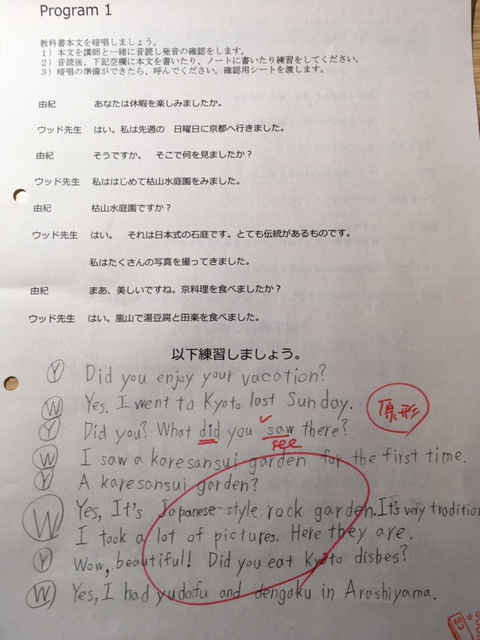 Program 1
教科書本文を暗唱しましょう。
1）本文を講師と一緒に音読し発音の確認をします。
2）音読後、下記空欄に本文を書いたり、ノートに書いたり練習をしてください。
3）暗唱の準備ができたら、呼んでください。確認用シートを渡します。
由紀 あなたは休暇を楽しみましたか。
ウッド先生 はい。私は先週の 日曜日に京都へ行きました。
由紀 そうですか。 そこで何を見ましたか？
ウッド先生 私ははじめて枯山水庭園をみました。
由紀 枯山水庭園ですか？
ウッド先生 はい。 それは日本式の石庭です。とても伝統があるものです。
私はたくさんの写真を撮ってきました。
由紀 まあ、美しいですね。京料理を食べましたか？
ウッド先生 はい。嵐山で湯豆腐と田楽を食べました。
以下練習しましょう。
Y Did you enjoy your vacation?
W Yes. I went to Kyoto last Sunday. 原形
Y Did you? What did you saw there?
see
W I saw a karesansui garden for the first time.
Y A karesansui garden?
W Yes, It's Japanese-style rock garden. It's very tradition
I took a lot of pictures. Here they are.
Y Wow, beautiful! Did you eat Kyoto dishes?
W Yes, I had yudofu and dengaku in Arashiyama.